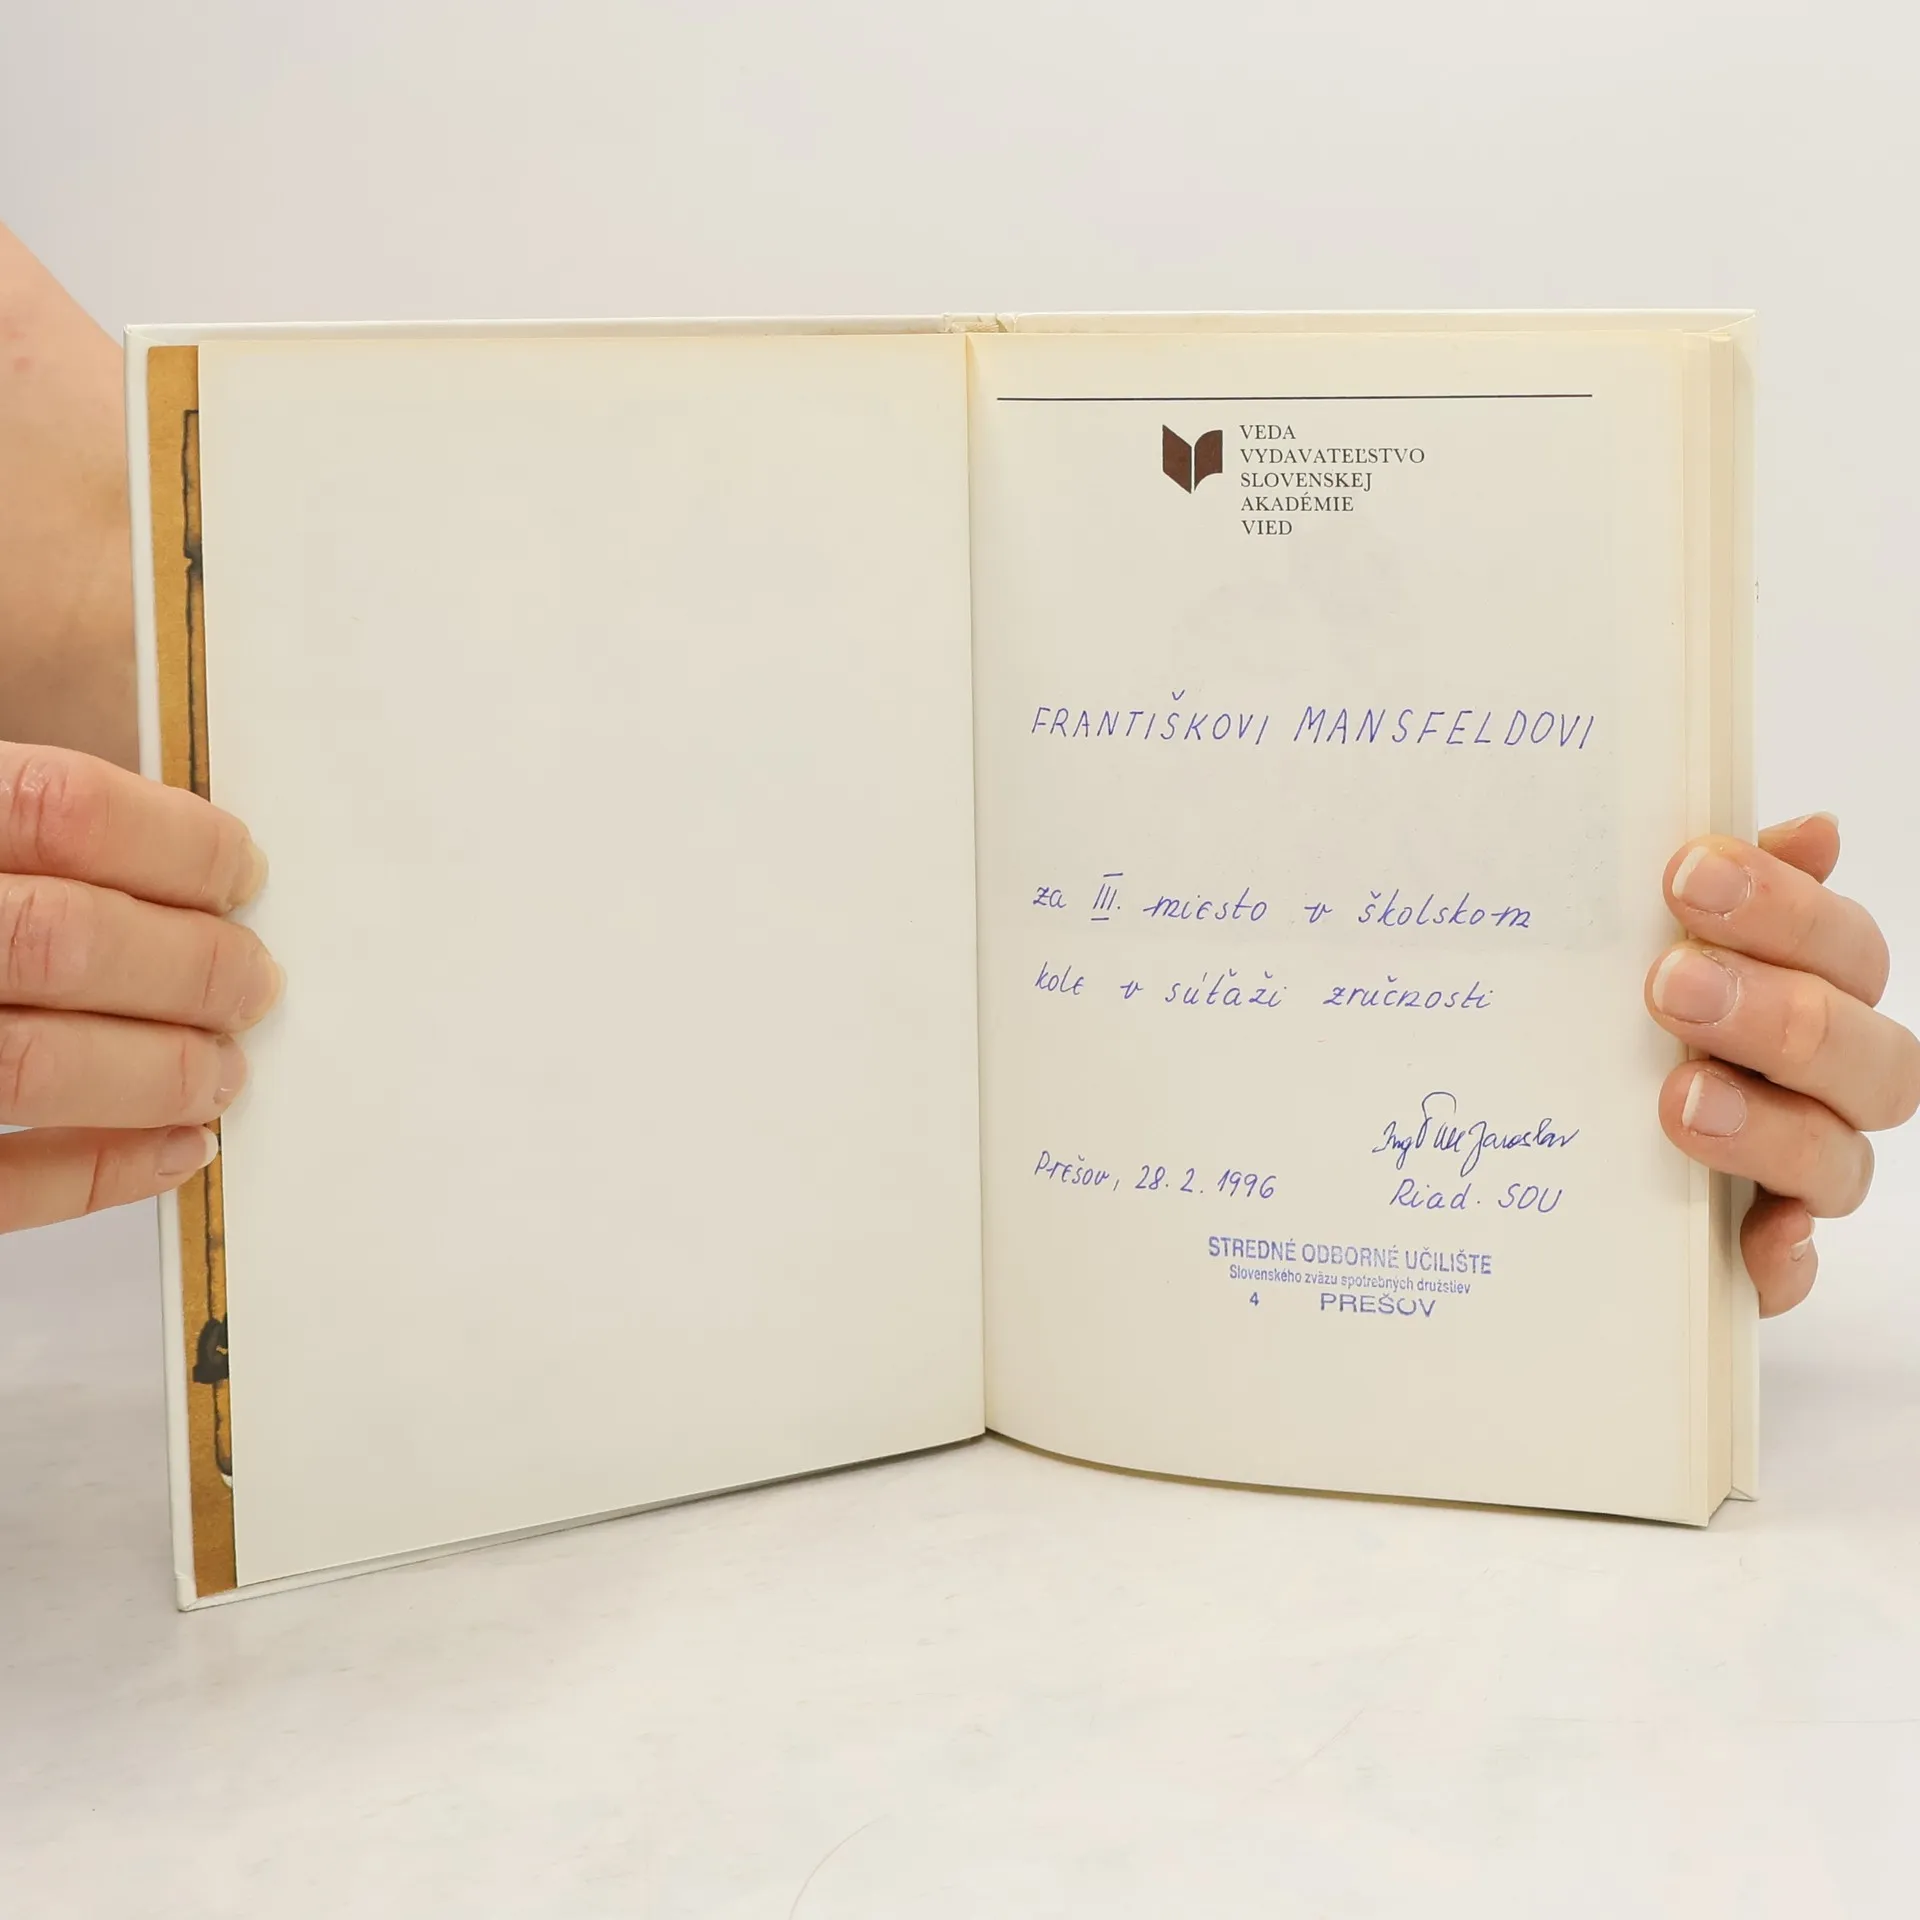 VEDA
VYDAVATEĽSTVO
SLOVENSKEJ
AKADÉMIE
VIED
FRANTIŠKOVI MANSFELDOVI
za III. miesto v školskom
kole v súťaži zručnosti
Ing Jaroslav
Prešov, 28. 2. 1996
Riad. SOU
STREDNÉ ODBORNÉ UČILIŠTE
Slovenského zväzu spotrebných družstiev
4 PREŠOV